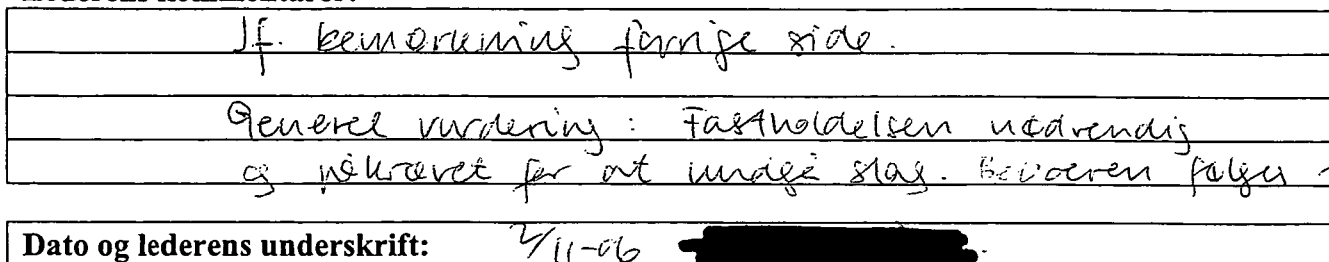 Jf. bemærkning forrige side.
Generel vurdering: Fastholdelsen nødvendig
og påkrævet for at undgå slag. Beboeren følges
Dato og lederens underskrift: 2/11-06